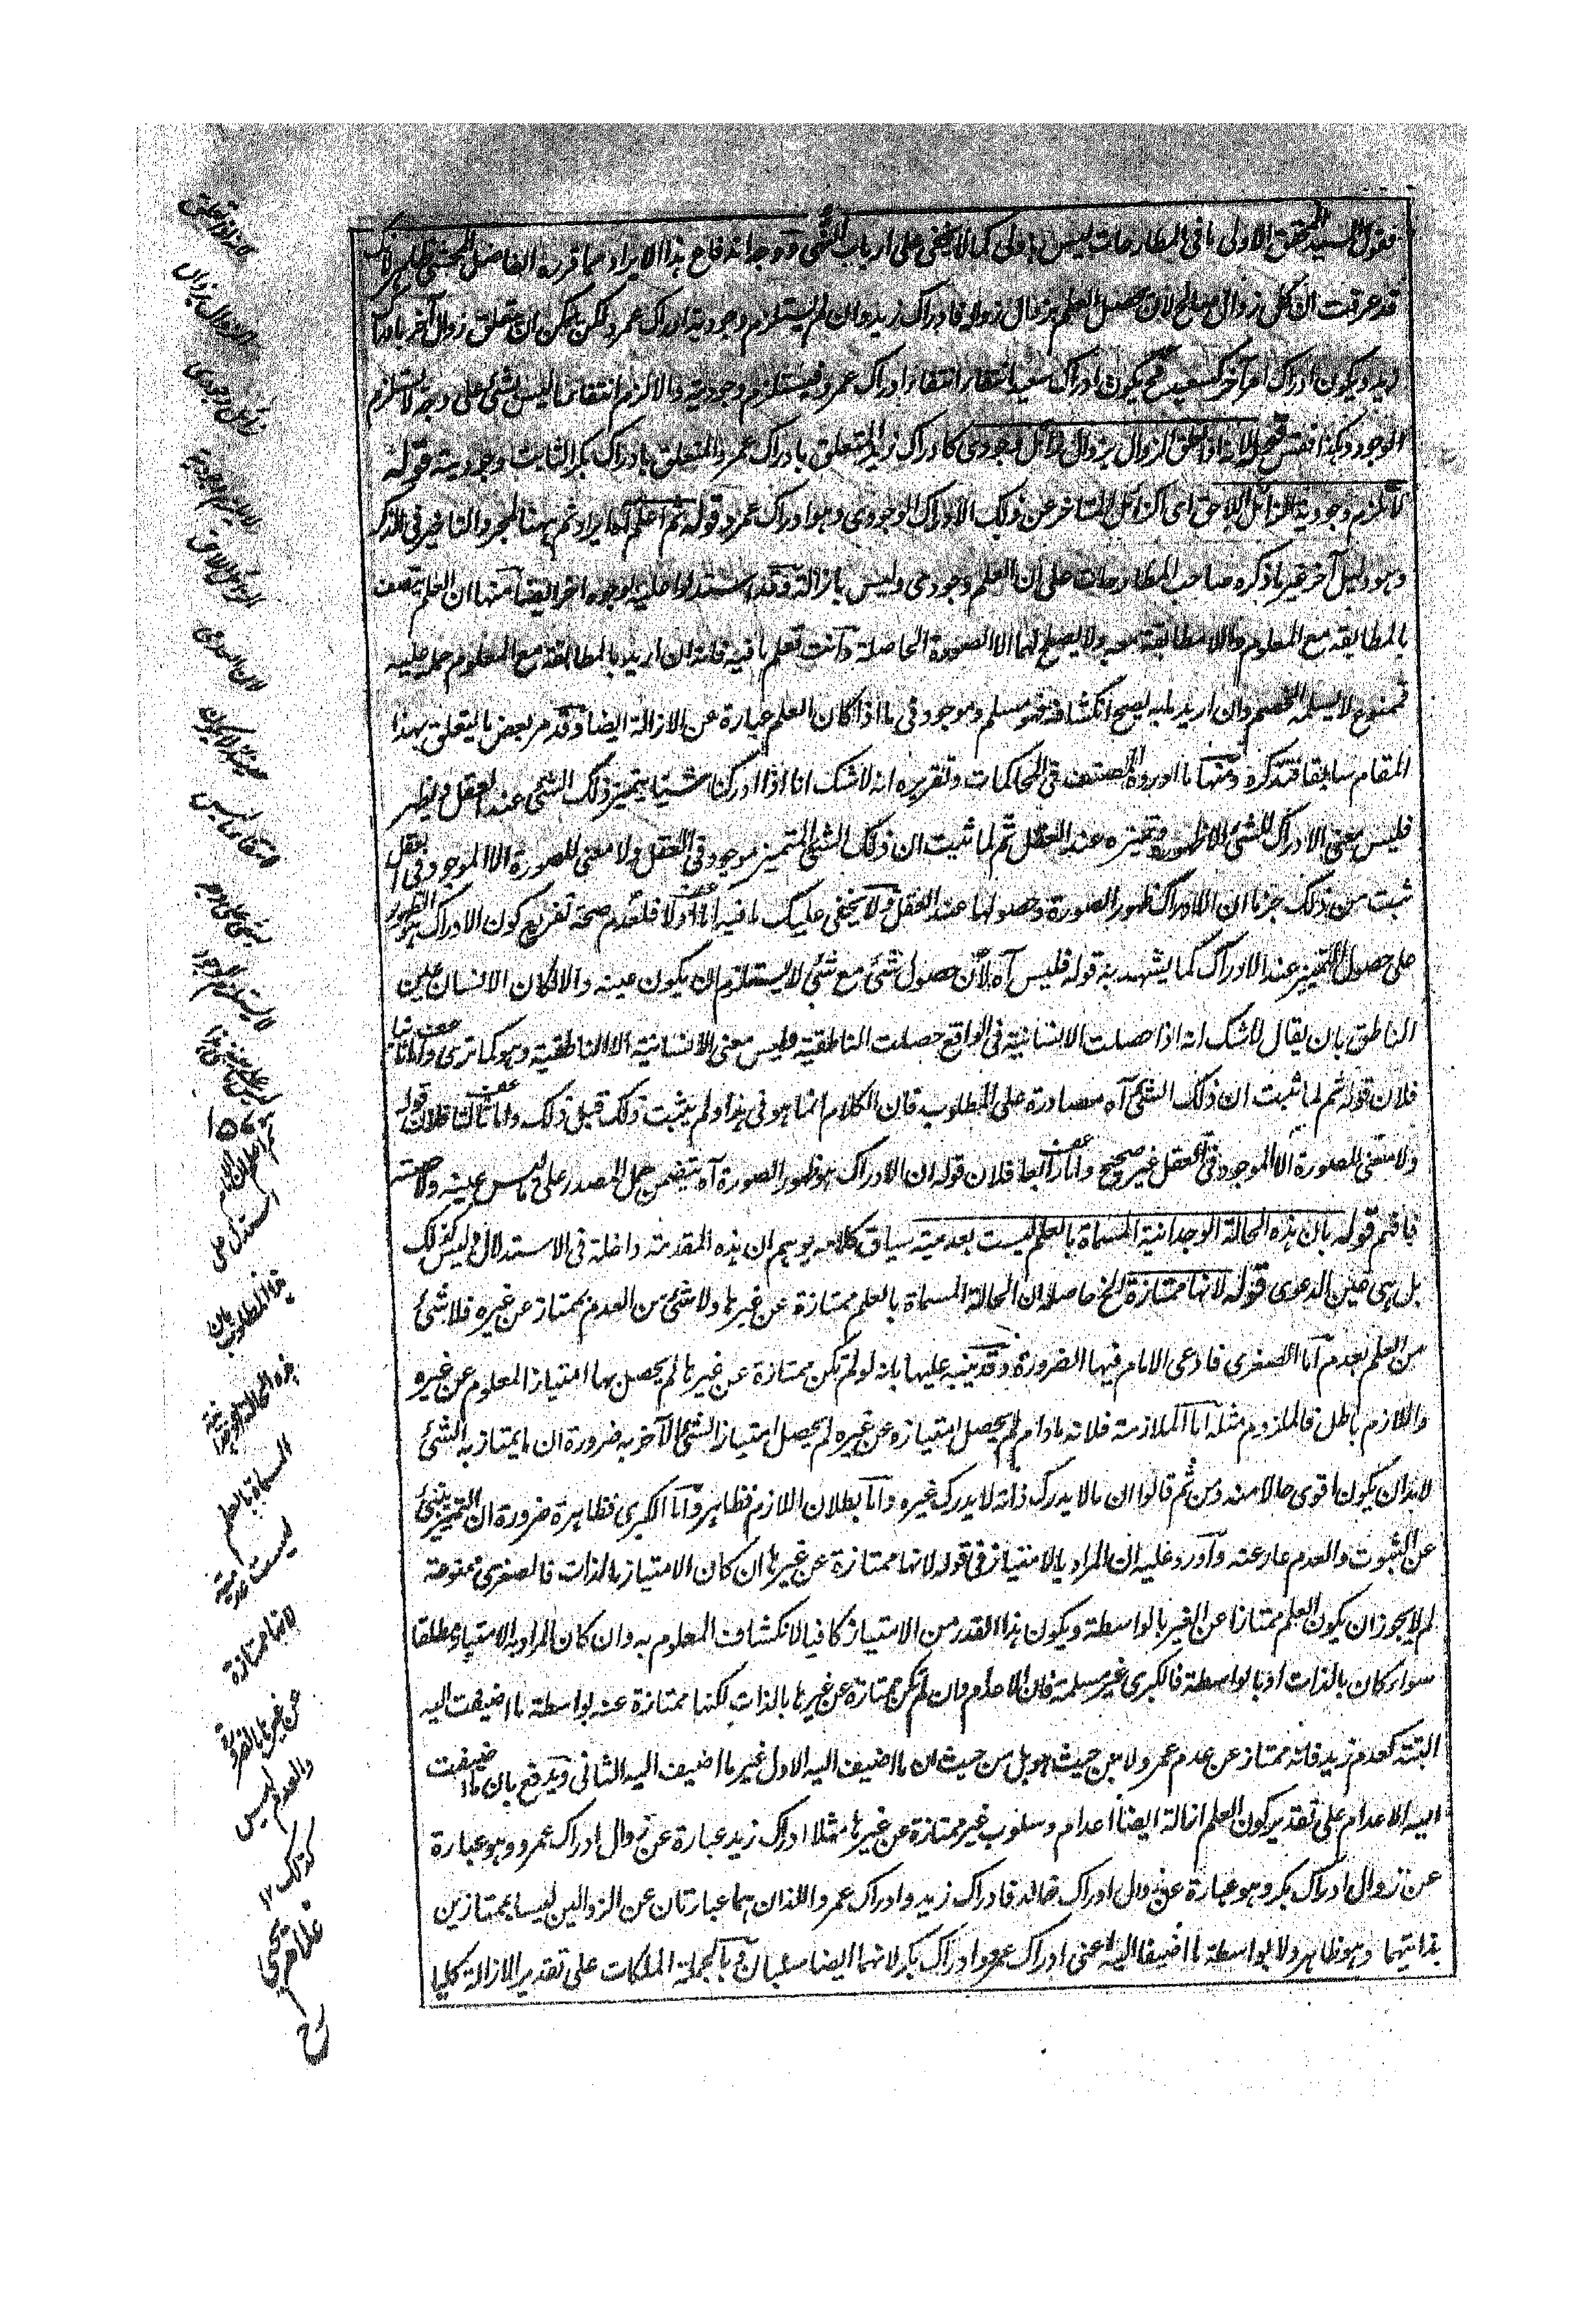 فقول السيد المحقق الاولى ما فى المطارحات ليس باولى كما لا يخفى على ارباب النهى ووجه اندفاع هذا الايراد مما قرره الفاضل المحشى ظاهر لانك
قد عرفت ان كل زوال صالح لان يحصل العلم بزوال زواله فادراك زيد وان لم يستلزم وجودية ادراك عمرو لكن يمكن ان يتعلق زوال آخر بادراك
زيد ويكون ادراك امر آخر كسعيد فح يكون ادراك سعيد انتفاء انتفاء ادراك عمرو فيستلزم وجوديته والا لزم انتفاء ما ليس بشئ على وجه لا يستلزم
الوجود وهكذا فقس قوله لانه اذا تعلق الزوال بزوال زائل وجودى كادراك زيد المتعلق بادراك عمرو المتعلق بادراك بكر الثابت وجوديته قوله
تلزم وجودية الزائل اللاحق اى الزائل المتاخر عن ذلك الادراك الوجودى وهو ادراك عمرو قوله ثم اعلم آه ايراد ثم ههنا لمجرد التاخير فى الذكر
وهو دليل آخر غير ما ذكره صاحب المطارحات على ان العلم وجودى وليس بازالة وقد استدلوا عليه بوجوه اخر ايضا منها ان العلم يتصف
بالمطابقة مع المعلوم واللامطابقة معه ولا يصلح لهما الا الصورة الحاصلة وانت تعلم ما فيه فانه ان اريد بالمطابقة مع المعلوم حمله عليه
فممنوع لا يسلمه الخصم وان اريد ما به يصح انكشافه فهو مسلم وموجود فى ما اذا كان العلم عبارة عن الازالة ايضا وقد مر بعض ما يتعلق بهذا
المقام سابقا فتذكره ومنها ما اورده المصنف فى المحاكمات وتقريره انه لا شك انا اذا ادركنا شيئا يتميز ذلك الشئ عند العقل ويظهر
فليس معنى الادراك للشئ الا ظهوره وتميزه عند العقل ثم لما ثبت ان ذلك الشئ المتميز موجود فى العقل ولا معنى للصورة الا الموجود فى العقل
ثبت من ذلك جزما ان الادراك ظهور الصورة وحصولها عند العقل ولا يخفى عليك ما فيه اما اولا فلعدم صحة تفريع كون الادراك هو الظهور
على حصول التميز عند الادراك كما يشهد به قوله فليس آه لان حصول شئ مع شئ لا يستلزم ان يكون عينه والا لكان الانسان عين
الناطق بان يقال لا شك انه اذا حصلت الانسانية فى الواقع حصلت الناطقية فليس معنى الانسانية الا الناطقية وهو كما ترى واما ثانيا
فلان قوله ثم لما ثبت ان ذلك الشئ آه مصادرة على المطلوب فان الكلام انما هو فى هذا ولم يثبت ذلك قبل ذلك واما ثالثا فلان قوله
ولا معنى للصورة الا الموجود فى العقل غير صحيح واما رابعا فلان قوله ان الادراك هو ظهور الصورة آه يتضمن حمل المصدر على ما ليس عينه ولا حصته
فافهم قوله بان هذه الحالة الوجدانية المسماة بالعلم ليست بعدمية سياق كلامه يوهم ان هذه المقدمة داخلة فى الاستدلال وليس كذلك
بل هى عين الدعوى قوله لانها ممتازة الخ حاصله ان الحالة المسماة بالعلم ممتازة عن غيرها ولا شئ من العدم بممتاز عن غيره فلا شئ
من العلم بعدم اما الصغرى فادعى الامام فيها الضرورة وقد ينبه عليها بانه لو لم تكن ممتازة عن غيرها لم يحصل بها امتياز المعلوم عن غيره
واللازم باطل فالملزوم مثله اما الملازمة فلانه ما دام لم يحصل امتيازه عن غيره لم يحصل امتياز الشئ الآخر به ضرورة ان ما يمتاز به الشئ
لابد ان يكون اقوى حالا منه ومن ثم قالوا ان ما لا يدرك ذاته لا يدرك غيره واما بطلان اللازم فظاهر واما الكبرى فظاهرة ضرورة ان التميز ينبئ
عن الثبوت والعدم عار عنه واورد عليه ان المراد بالامتياز فى قوله لانها ممتازة عن غيرها ان كان الامتياز بالذات فالصغرى ممنوعة
لم لا يجوز ان يكون العلم ممتازا عن الغير بالواسطة ويكون هذا القدر من الامتياز كافيا لانكشاف المعلوم به وان كان المراد به الامتياز مطلقا
سواء كان بالذات او بالواسطة فالكبرى غير مسلمة فان الاعدام وان لم تكن ممتازة عن غيرها بالذات لكنها ممتازة عنه بواسطة ما اضيفت اليه
البتة كعدم زيد فانه ممتاز عن عدم عمرو لا من حيث هو بل من حيث ان ما اضيف اليه الاول غير ما اضيف اليه الثانى ويدفع بان ما اضيفت
اليه الاعدام على تقدير كون العلم ازالة ايضا اعدام وسلوب غير ممتازة عن غيرها مثلا ادراك زيد عبارة عن زوال ادراك عمرو وهو عبارة
عن زوال ادراك بكر وهو عبارة عن زوال ادراك خالد فادراك زيد وادراك عمرو اللذان هما عبارتان عن الزوالين ليسا بممتازين
بذاتيهما وهو ظاهر ولا بواسطة ما اضيفا اليه اعنى ادراك عمرو وادراك بكر لانهما ايضا سلبان وبالجملة الملكات على تقدير الازالة كليا
لانه اذا تعلق
الزوال بزوال
زائل وجودى
تلزم وجودية
الزائل اللاحق
لان السلب
انتفاء ما ليس
بشئ على وجه
لا يستلزم الوجود
ثم اعلم ان الامام
استدل على
هذا المطلوب بان
هذه الحالة الوجدانية
المسماة بالعلم
ليست عدمية
لانها ممتازة
عن غيرها بالضرورة
والعدم ليس
كذلك ١٢
غلام يحيى
رح